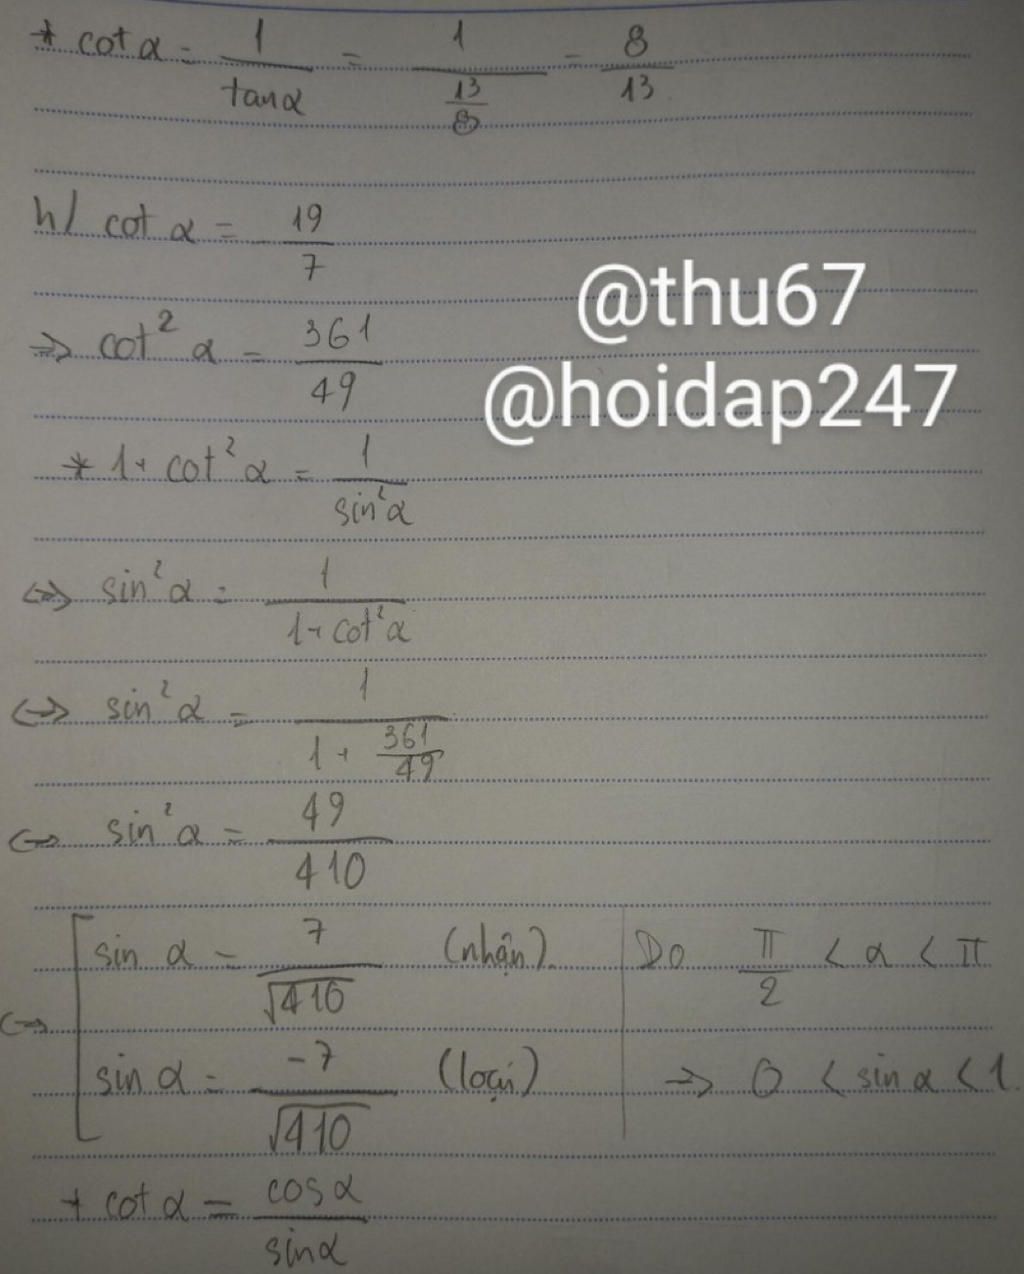 * cot α = 1/tanα = 1/(13/8) = 8/13
h/ cot α = 19/7
@thu67
⇒ cot² α = 361/49
@hoidap247
* 1 + cot² α = 1/sin²α
⇔ sin²α = 1/(1 + cot²α)
⇔ sin²α = 1/(1 + 361/49)
⇔ sin²α = 49/410
⇔ [ sin α = 7/√410 (nhận). Do π/2 < α < π
sin α = -7/√410 (loại) ⇒ 0 < sin α < 1.
+ cot α = cosα/sinα